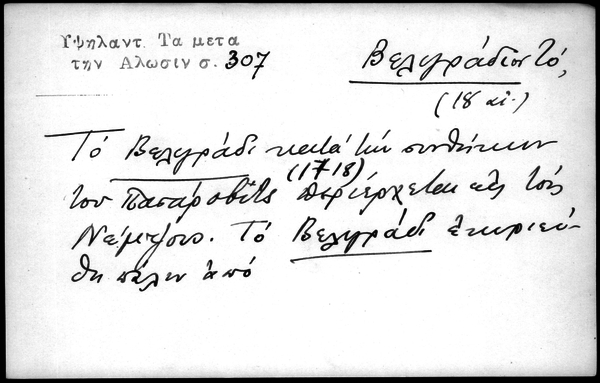 Υψηλαντ. Τα μετα
την Αλωσιν σ. 307
Βελιγράδιον τό,
(18 αι.)
Τό Βελιγράδι κατά τήν συνθήκην
του Πασάροβιτς (1718) περιέρχεται εις τούς
Νέμτσους. Τό Βελιγράδι εκυριεύ-
θη πάλιν από